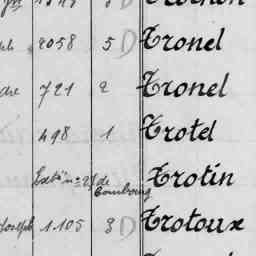 2058 5 D Tronel
721 2 Tronel
498 1 Trotel
de Combourg Trotin
Joseph 1.105 3 D Trotoux